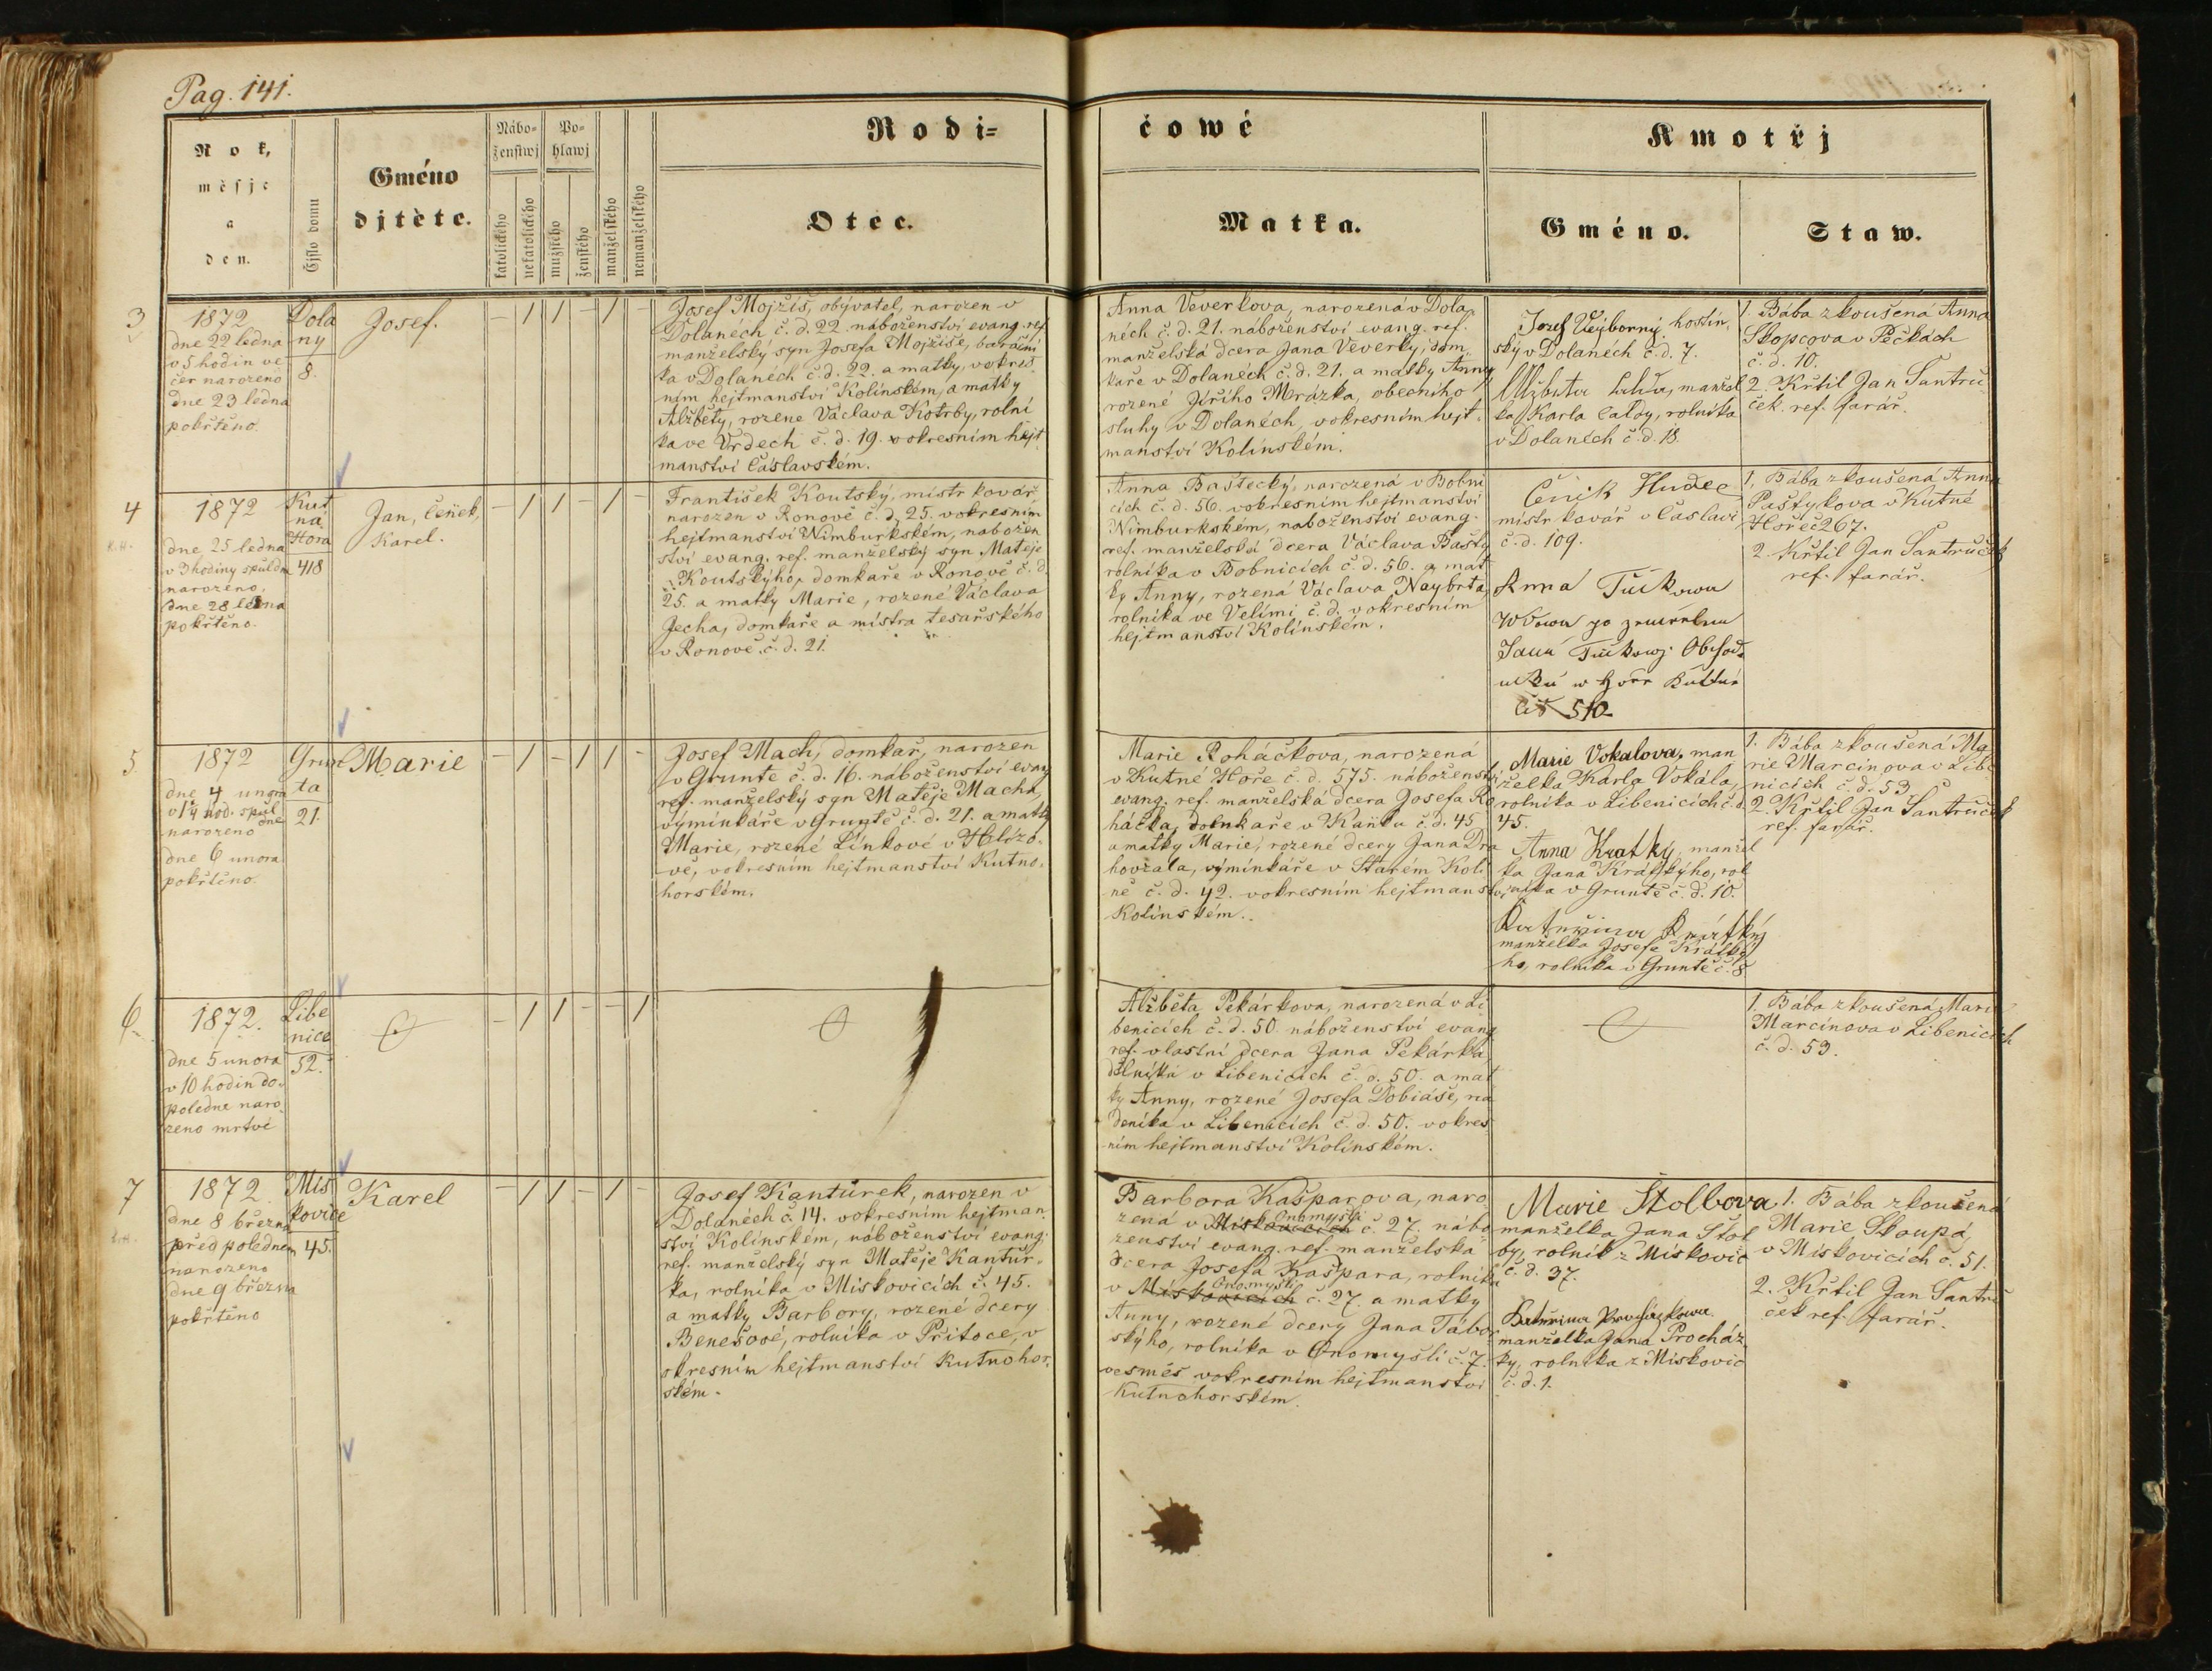 Pag. 141.
Rok,
měsjc
a
den.
Čjslo domu
Gméno
djtěte.
Nábo-
ženstwj
katolického
nekatolického
Po-
hlawj
mužského
ženského
manželského
nemanželského
Rodi-
čowé
Otec.
Matka.
Kmotřj
Gméno.
Staw.
3
1872
dne 22 ledna
v 5 hodin ve
čer narozeno
dne 23 ledna
pokřtěno.
Dola
ny
8.
Josef.
- 1 1 - 1 -
Josef Mojžíš, obývatel, narozen v
Dolanéch č. d. 22. náboženství evang. ref.
manželský syn Josefa Mojžíše, baráční
ka v Dolanéch č. d. 22. a matky, v okres
ním hejtmanství Kolínském, a matky
Alžběty, rozene Václava Kotrby, rolní
ka ve Vrdech č. d. 19. v okresním hejt
manství Čáslavském.
Anna Veverkova, narozená v Dola
néch č. d. 21. náboženství evang. ref.
manželská dcera Jana Veverky, dom
kaře v Dolanéch č. d. 21. a matky Anny
rozené Jiřího Mrázka, obecního
sluhy v Dolanéch, v okresním hejt
manství Kolínském.
Josef Veýborný hostin,
ský v Dolanéch č. d. 7.
manžel
ka Karla Caldy, rolníka
v Dolanéch č. d. 18.
1. Bába zkoušená Anna
Skopcova v Pečkách
č. d. 10.
2. Křtil Jan Šantrů
ček. ref. farář.
4
1872
dne 25 ledna
v 3 hodiny z půldn
narozeno,
dne 28 ledna
pokřtěno.
Kut
ná
Hora
418
Jan, Čeněk,
Karel.
- 1 1 - 1 -
František Koutský, mistr kovář,
narozen v Ronově č. d. 25. v okresním
hejtmanství Nimburkském, nabožen
ství evang. ref. manželský syn Matěje
Koutskýho, domkaře v Ronově č. d.
25. a matky Marie, rozené Václava
Jecha, domkaře a mistra tesařského
v Ronově č. d. 21.
Anna Baštecký, narozená v Bobni
cích č. d. 56. v okresním hejtmanství
Nimburkském, naboženství evang.
ref. manželská dcera Václava Bašty
rolníka v Bobnicích č. d. 56. a mat
ky Anny, rozená Václava Naybrta,
rolníka ve Velími č. d. v okresním
hejtmanství Kolínském.
Čeněk Hudec
mistr kovář v Čáslavi
č. d. 109.
Anna Tučkowa
Wdowa po
Tučkowj
w
Čís 510
1. Bába zkoušená Anna
Paštykova v Kutné
Hoře č 267.
2. Křtil Jan Šantrůček
ref. farář.
5
1872
dne 4 unora
v 1¼ hod. z půl
dne
narozeno
dne 6 unora
pokřtěno.
Grun
ta
21.
Marie
- 1 - 1 1 -
Josef Mach, domkař, narozen
v Gruntě č. d. 16. náboženství evang
ref. manželský syn Matěje Macha,
výminkáře v Gruntě č. d. 21. a matky
Marie, rozené Linkové v Hlízo
vě, v okresním hejtmanství Kutno
horském.
Marie Roháčkova, narozená
v Kutné Hoře č. d. 575. náboženství
evang. ref. manželská dcera Josefa Ro
háčka, domkaře v Kaňku č. d. 45
a matky Marie, rozené dcery Jana Dra
hovzala, výminkáře v Starém Kolí
ně č. d. 42. v okresním hejtmanství
Kolínském.
Marie Vokalova, man
želka Karla Vokála,
rolníka v Libenicích č. d.
45.
Anna Kratký, manžel
ka Jana Krátkýho, rol
níka v Gruntě č. d. 10.
Krátký
manželka Josefa Krátký
ho, rolníka v Gruntě č. 8
1. Bába zkoušená Ma
rie Marcinova v Libe
nicích č. d. 53
2. Křtil Jan Šantrůček
ref. farář.
6
1872.
dne 5 unora
v 10 hodin do
poledne naro
zeno mrtvé
Libe
nice
52.
- 1 1 - - 1
Alžběta Pekárkova, narozená v Li
benicích č. d. 50. náboženství evang
ref. vlastní dcera Jana Pekárka
dělníka v Libenicích č. d. 50. a mat
ky Anny, rozené Josefa Dobiáše, na
deníka v Libenicích č. d. 50. v okres
ním hejtmanství Kolínském.
1. Bába zkoušená Mari
Marcinova v Libenicích
č. d. 53.
7
1872
dne 8 března
před polednem
narozeno
dne 9 března
pokřtěno
Mis
kovice
45.
Karel
- 1 1 - 1 -
Josef Kantůrek, narozen v
Dolanéch č. 14. v okresním hejtman
ství Kolínském, náboženství evang.
ref. manželský syn Matěje Kantůr
ka, rolníka v Miskovicích č. 45.
a matky Barbory, rozené dcery
Benešové, rolníka v Přitoce, v
okresním hejtmanství Kutnohor
ském.
Barbora Kašparova, naro
Onomyšli
zená v Miskovicích č. 27. nábo
ženství evang. ref. manželská
dcera Josefa Kašpara, rolníka
Onomyšli
v Miskovicích č. 27. a matky
Anny, rozené dcery Jana Tábor
skýho, rolníka v Onomyšli č. 7.
vesměs v okresním hejtmanství
Kutnohorském.
Marie Štolbova
manželka Jana Štol
by, rolník z Miskovic
č. d. 37.
Kateřina Procházkowa
manželka Jana Procház
ky, rolníka z Miskovic
č. d. 1.
1. Bába zkoušená
Marie Skoupá,
v Miskovicích č. 51.
2. Křtil Jan Šantrů
ček ref. farář.